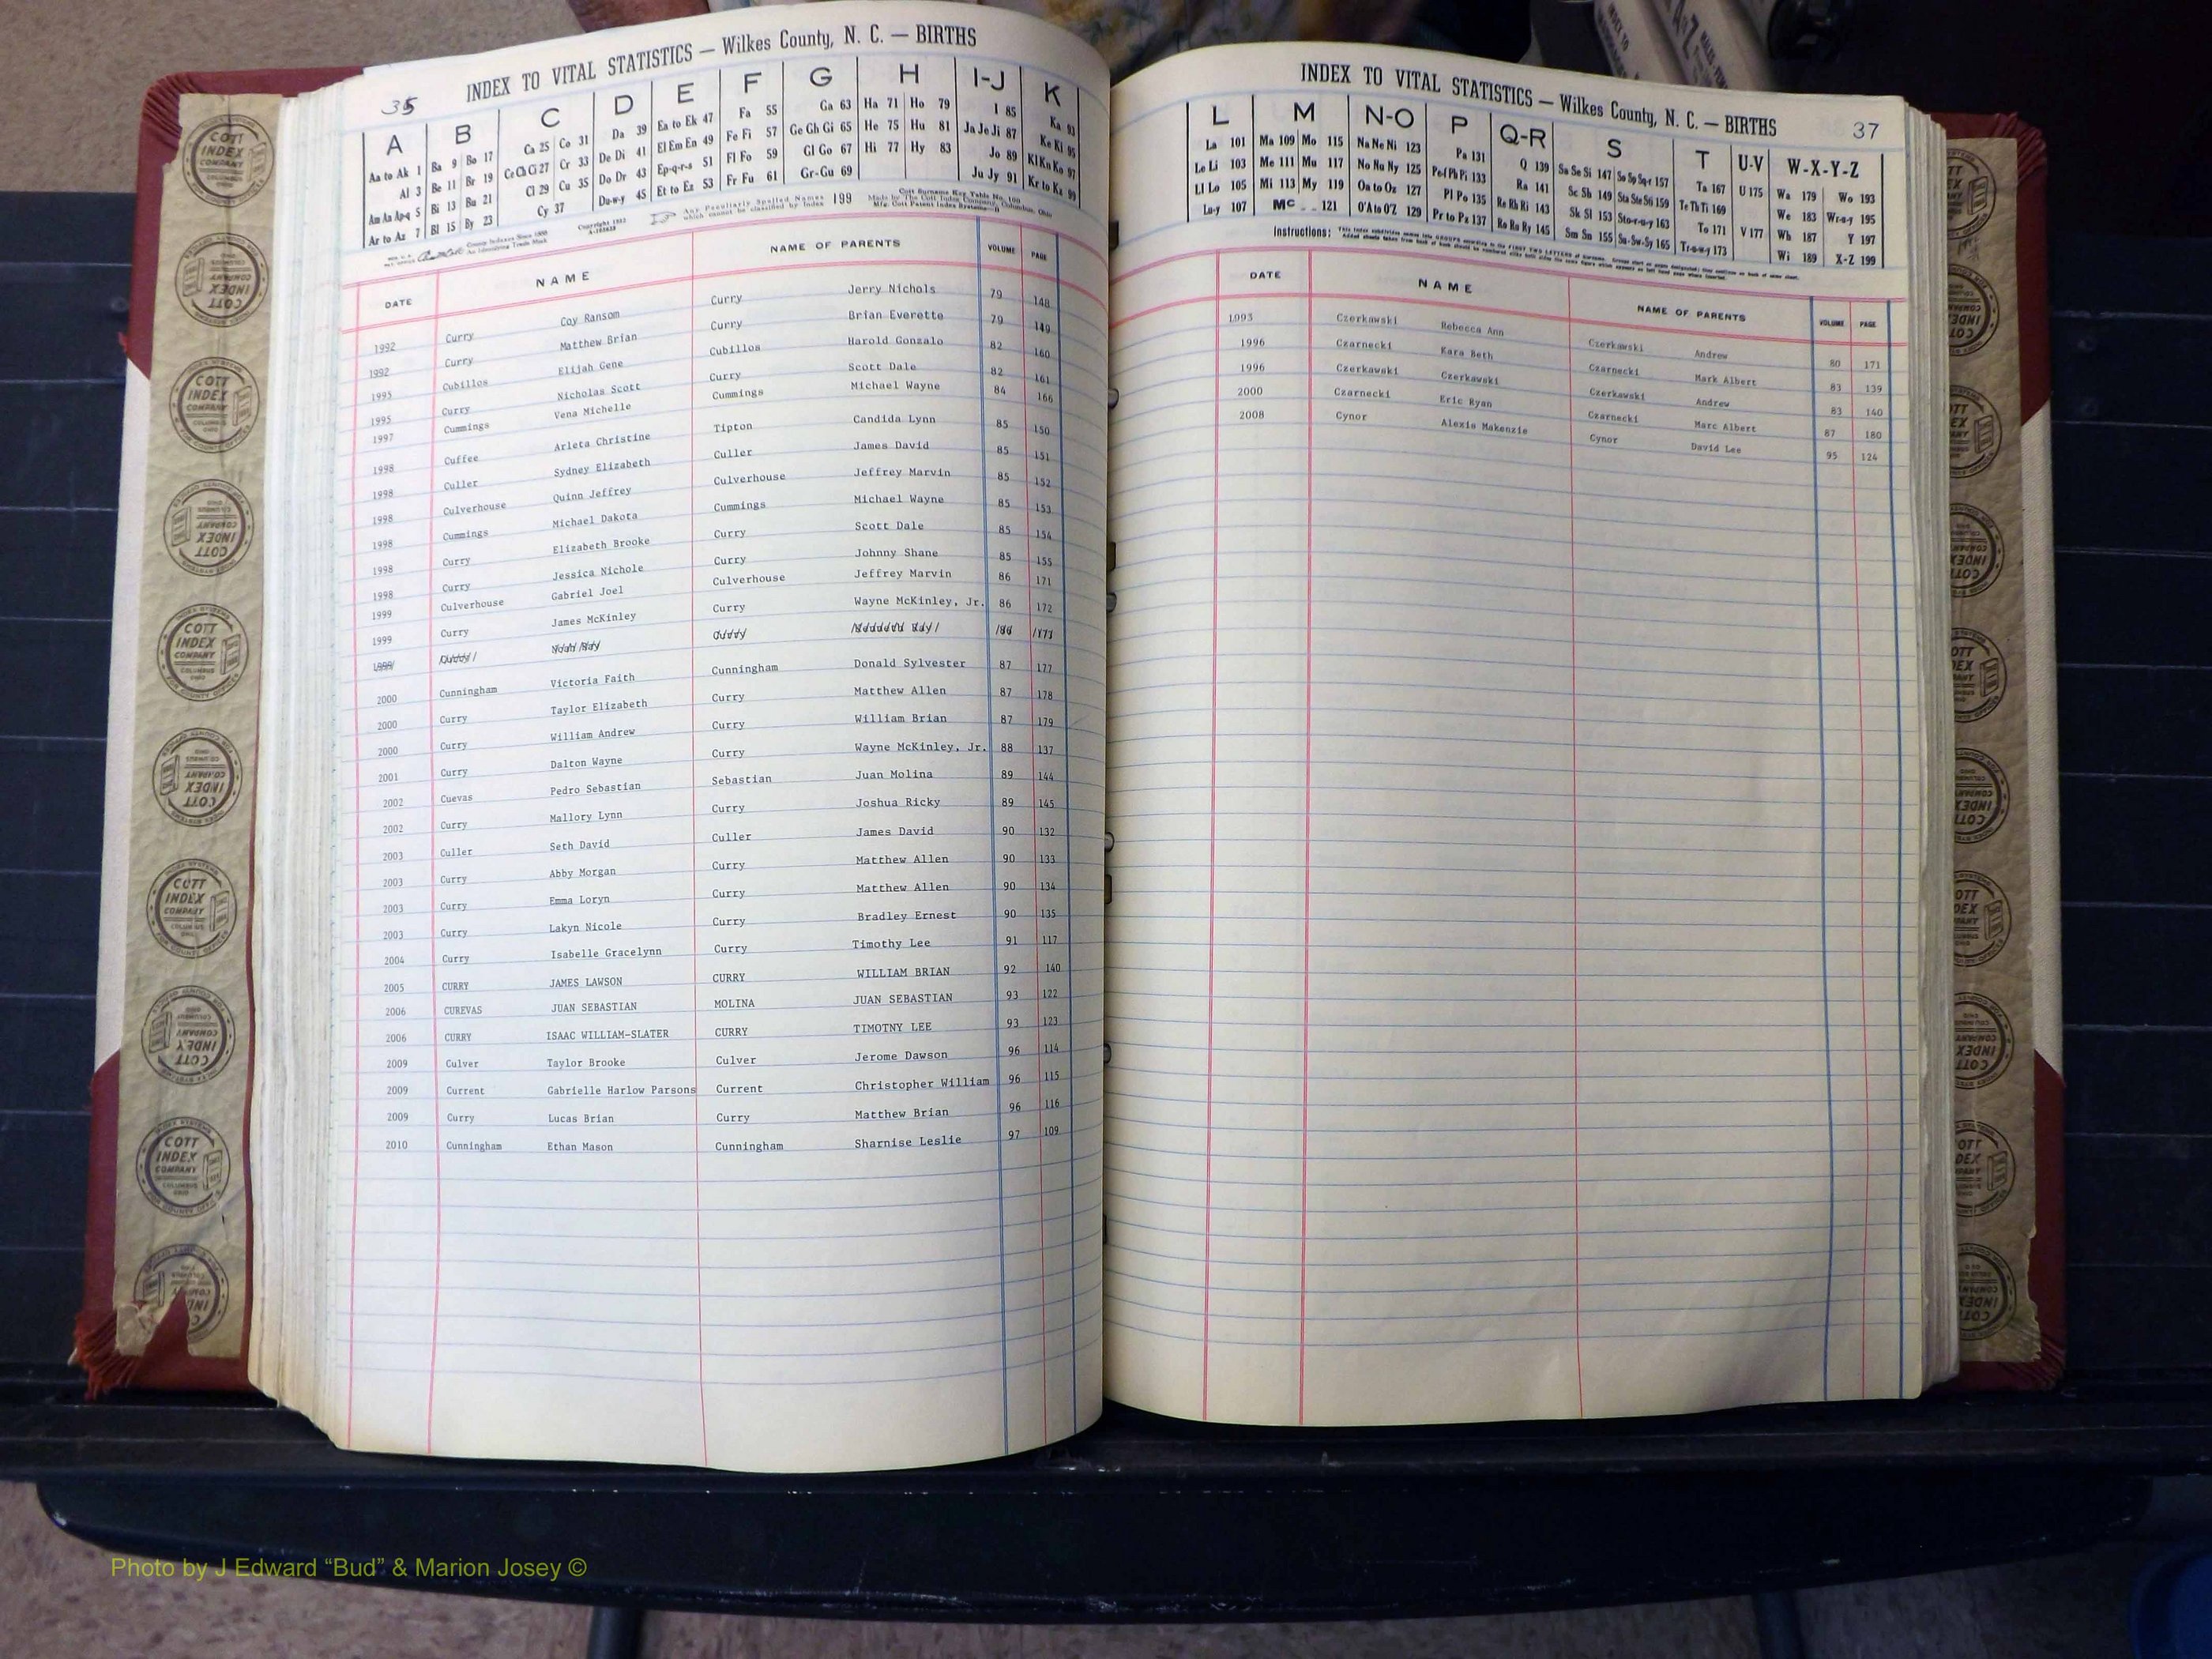 35
INDEX TO VITAL STATISTICS — Wilkes County, N. C. — BIRTHS
A B C D E F G H I-J K
Aa to Ak 1 Ba 9 Bo 17 Ca 25 Co 31 Da 39 Ea to Ek 47 Fa 55 Ga 63 Ha 71 Ho 79 I 85 Ka 93
Al 3 Be 11 Br 19 Ce Ch Ci 27 Cr 33 De Di 41 El Em En 49 Fe Fi 57 Ge Gh Gi 65 He 75 Hu 81 Ja Je Ji 87 Ke Ki 95
Am An Ap-q 5 Bi 13 Bu 21 Cl 29 Cu 35 Do Dr 43 Ep-q-r-s 51 Fl Fo 59 Gl Go 67 Hi 77 Hy 83 Jo 89 Kl Kn Ko 97
Ar to Az 7 Bl 15 By 23 Cy 37 Du-w-y 45 Et to Ez 53 Fr Fu 61 Gr-Gu 69 Ju Jy 91 Kr to Kz 99
Any Peculiarly Spelled Names which cannot be classified by Index 199
DATE NAME NAME OF PARENTS VOLUME PAGE
1992 Curry Coy Ransom Curry Jerry Nichols 79 148
1992 Curry Matthew Brian Curry Brian Everette 79 149
1995 Cubillos Elijah Gene Cubillos Harold Gonzalo 82 160
1995 Curry Nicholas Scott Curry Scott Dale 82 161
1997 Cummings Vena Michelle Cummings Michael Wayne 84 166
1998 Cuffee Arleta Christine Tipton Candida Lynn 85 150
1998 Culler Sydney Elizabeth Culler James David 85 151
1998 Culverhouse Quinn Jeffrey Culverhouse Jeffrey Marvin 85 152
1998 Cummings Michael Dakota Cummings Michael Wayne 85 153
1998 Curry Elizabeth Brooke Curry Scott Dale 85 154
1998 Curry Jessica Nichole Curry Johnny Shane 85 155
1999 Culverhouse Gabriel Joel Culverhouse Jeffrey Marvin 86 171
1999 Curry James McKinley Curry Wayne McKinley, Jr. 86 172
2000 Cunningham Victoria Faith Cunningham Donald Sylvester 87 177
2000 Curry Taylor Elizabeth Curry Matthew Allen 87 178
2000 Curry William Andrew Curry William Brian 87 179
2001 Curry Dalton Wayne Curry Wayne McKinley, Jr. 88 137
2002 Cuevas Pedro Sebastian Sebastian Juan Molina 89 144
2002 Curry Mallory Lynn Curry Joshua Ricky 89 145
2003 Culler Seth David Culler James David 90 132
2003 Curry Abby Morgan Curry Matthew Allen 90 133
2003 Curry Emma Loryn Curry Matthew Allen 90 134
2003 Curry Lakyn Nicole Curry Bradley Ernest 90 135
2004 Curry Isabelle Gracelynn Curry Timothy Lee 91 117
2005 CURRY JAMES LAWSON CURRY WILLIAM BRIAN 92 140
2006 CUREVAS JUAN SEBASTIAN MOLINA JUAN SEBASTIAN 93 122
2006 CURRY ISAAC WILLIAM-SLATER CURRY TIMOTNY LEE 93 123
2009 Culver Taylor Brooke Culver Jerome Dawson 96 114
2009 Current Gabrielle Harlow Parsons Current Christopher William 96 115
2009 Curry Lucas Brian Curry Matthew Brian 96 116
2010 Cunningham Ethan Mason Cunningham Sharnise Leslie 97 109
INDEX TO VITAL STATISTICS — Wilkes County, N. C. — BIRTHS
37
L M N-O P Q-R S T U-V W-X-Y-Z
La 101 Ma 109 Mo 115 Na Ne Ni 123 Pa 131 Q 139 Sa Se Si 147 So Sp Sq-r 157 Ta 167 U 175 Wa 179 Wo 193
Le Li 103 Me 111 Mu 117 No Nu Ny 125 Pe-f Ph Pi 133 Ra 141 Sc Sh 149 Sta Ste Sti 159 Te Th Ti 169 We 183 Wr-u-y 195
Ll Lo 105 Mi 113 My 119 Oa to Oz 127 Pl Po 135 Re Rh Ri 143 Sk Sl 153 Sto-r-u-y 163 To 171 V 177 Wh 187 Y 197
Lu-y 107 Mc 121 O'A to O'Z 129 Pr to Pz 137 Ro Ru Ry 145 Sm Sn 155 Su-Sw-Sy 165 Tr-u-w-y 173 Wi 189 X-Z 199
Instructions:
DATE NAME NAME OF PARENTS VOLUME PAGE
1993 Czerkawski Rebecca Ann Czerkawski Andrew 80 171
1996 Czarnecki Kara Beth Czarnecki Mark Albert 83 139
1996 Czerkawski Czerkawski Czerkawski Andrew 83 140
2000 Czarnecki Eric Ryan Czarnecki Marc Albert 87 180
2008 Cynor Alexis Makenzie Cynor David Lee 95 124
COTT INDEX COMPANY
Photo by J Edward “Bud” & Marion Josey ©